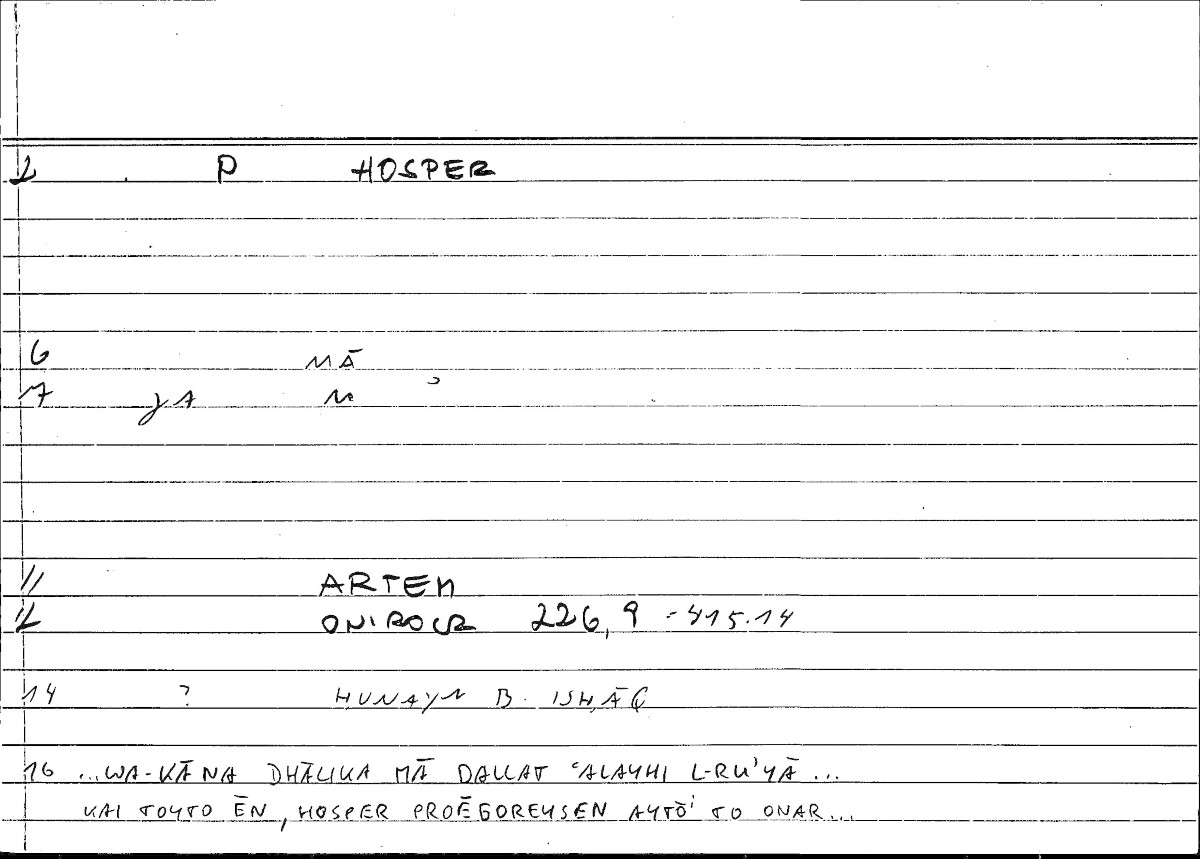 1 . P HOSPER
6 MĀ
7 YA N
11 ARTEM
12 ONIROCR 226,9 = 415.14
14 ? HUNAYN B. ISḤĀQ
16 ...WA-KĀNA DHĀLIKA MĀ DALLAT ʿALAYHI L-RU'YĀ ...
KAI TOYTO ĒN, HOSPER PROĒGOREYSEN AYTŌ' TO ONAR...